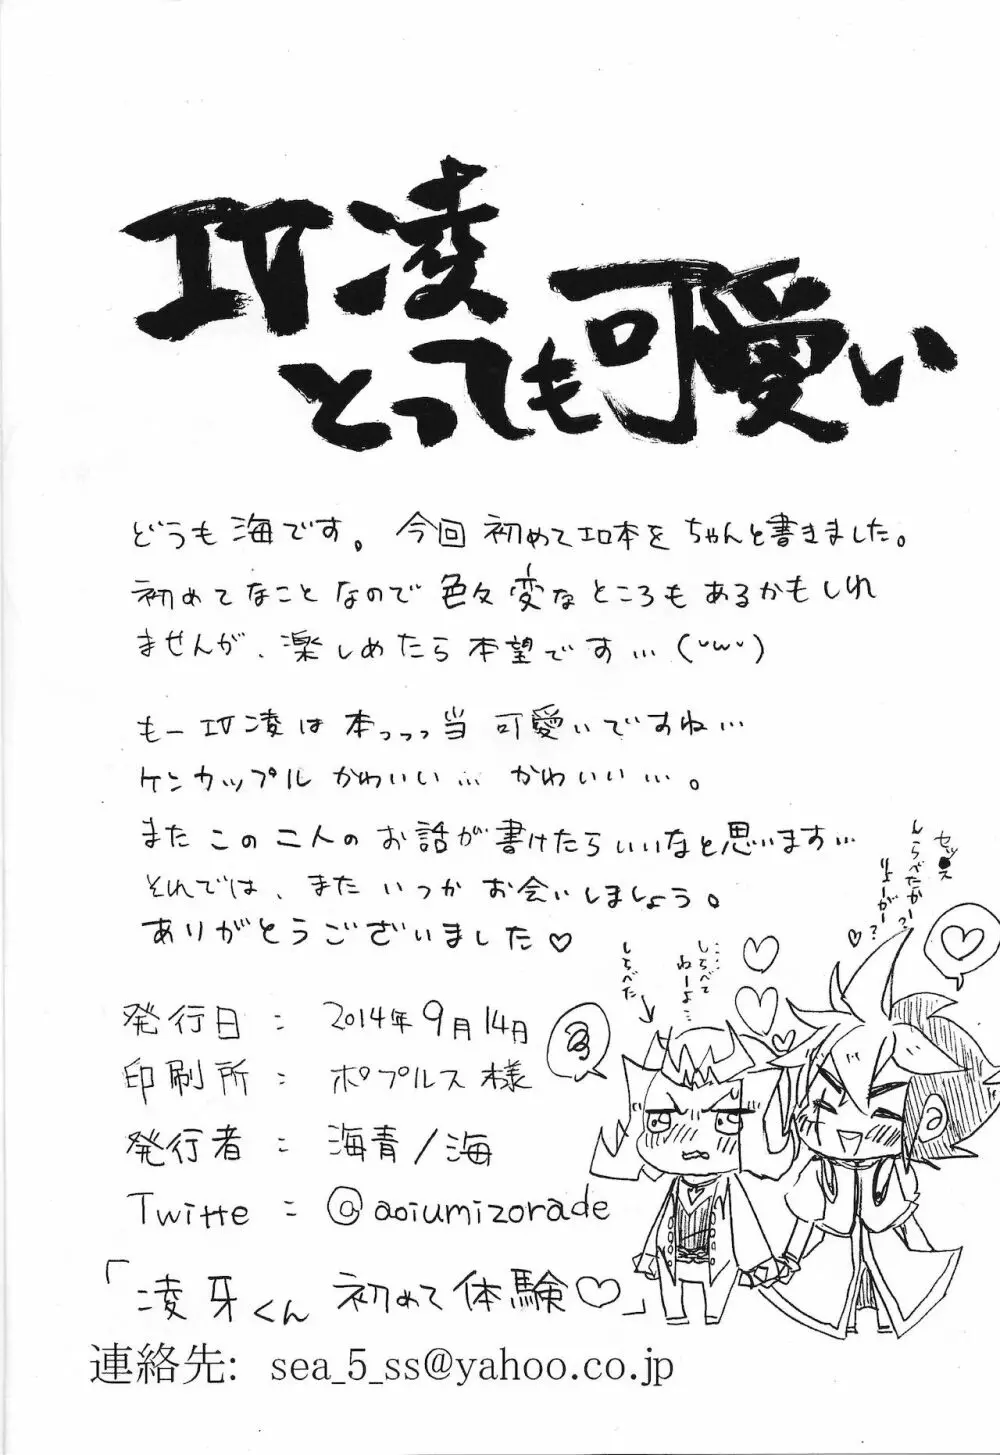 IV凌
とっても可愛い
どうも海です。今回初めてエロ本をちゃんと書きました。
初めてなことなので色々変なところもあるかもしれ
ませんが、楽しめたら本望です…(˘ω˘)
もーIV凌は本っっっ当可愛いですね…
ケンカップルかわいい…かわいい…。
またこの二人のお話が書けたらいいなと思います…
それでは、またいつかお会いしましょう。
ありがとうございました♡
セッ●ス
しらべたかー?
りょーがー?
♡
しらべて
ねーよ…
しらべた
発行日:2014年9月14日
印刷所:ポプルス様
発行者:海青/海
Twitte:@aoiumizorade
「凌牙くん初めて体験♡」
連絡先: sea_5_ss@yahoo.co.jp